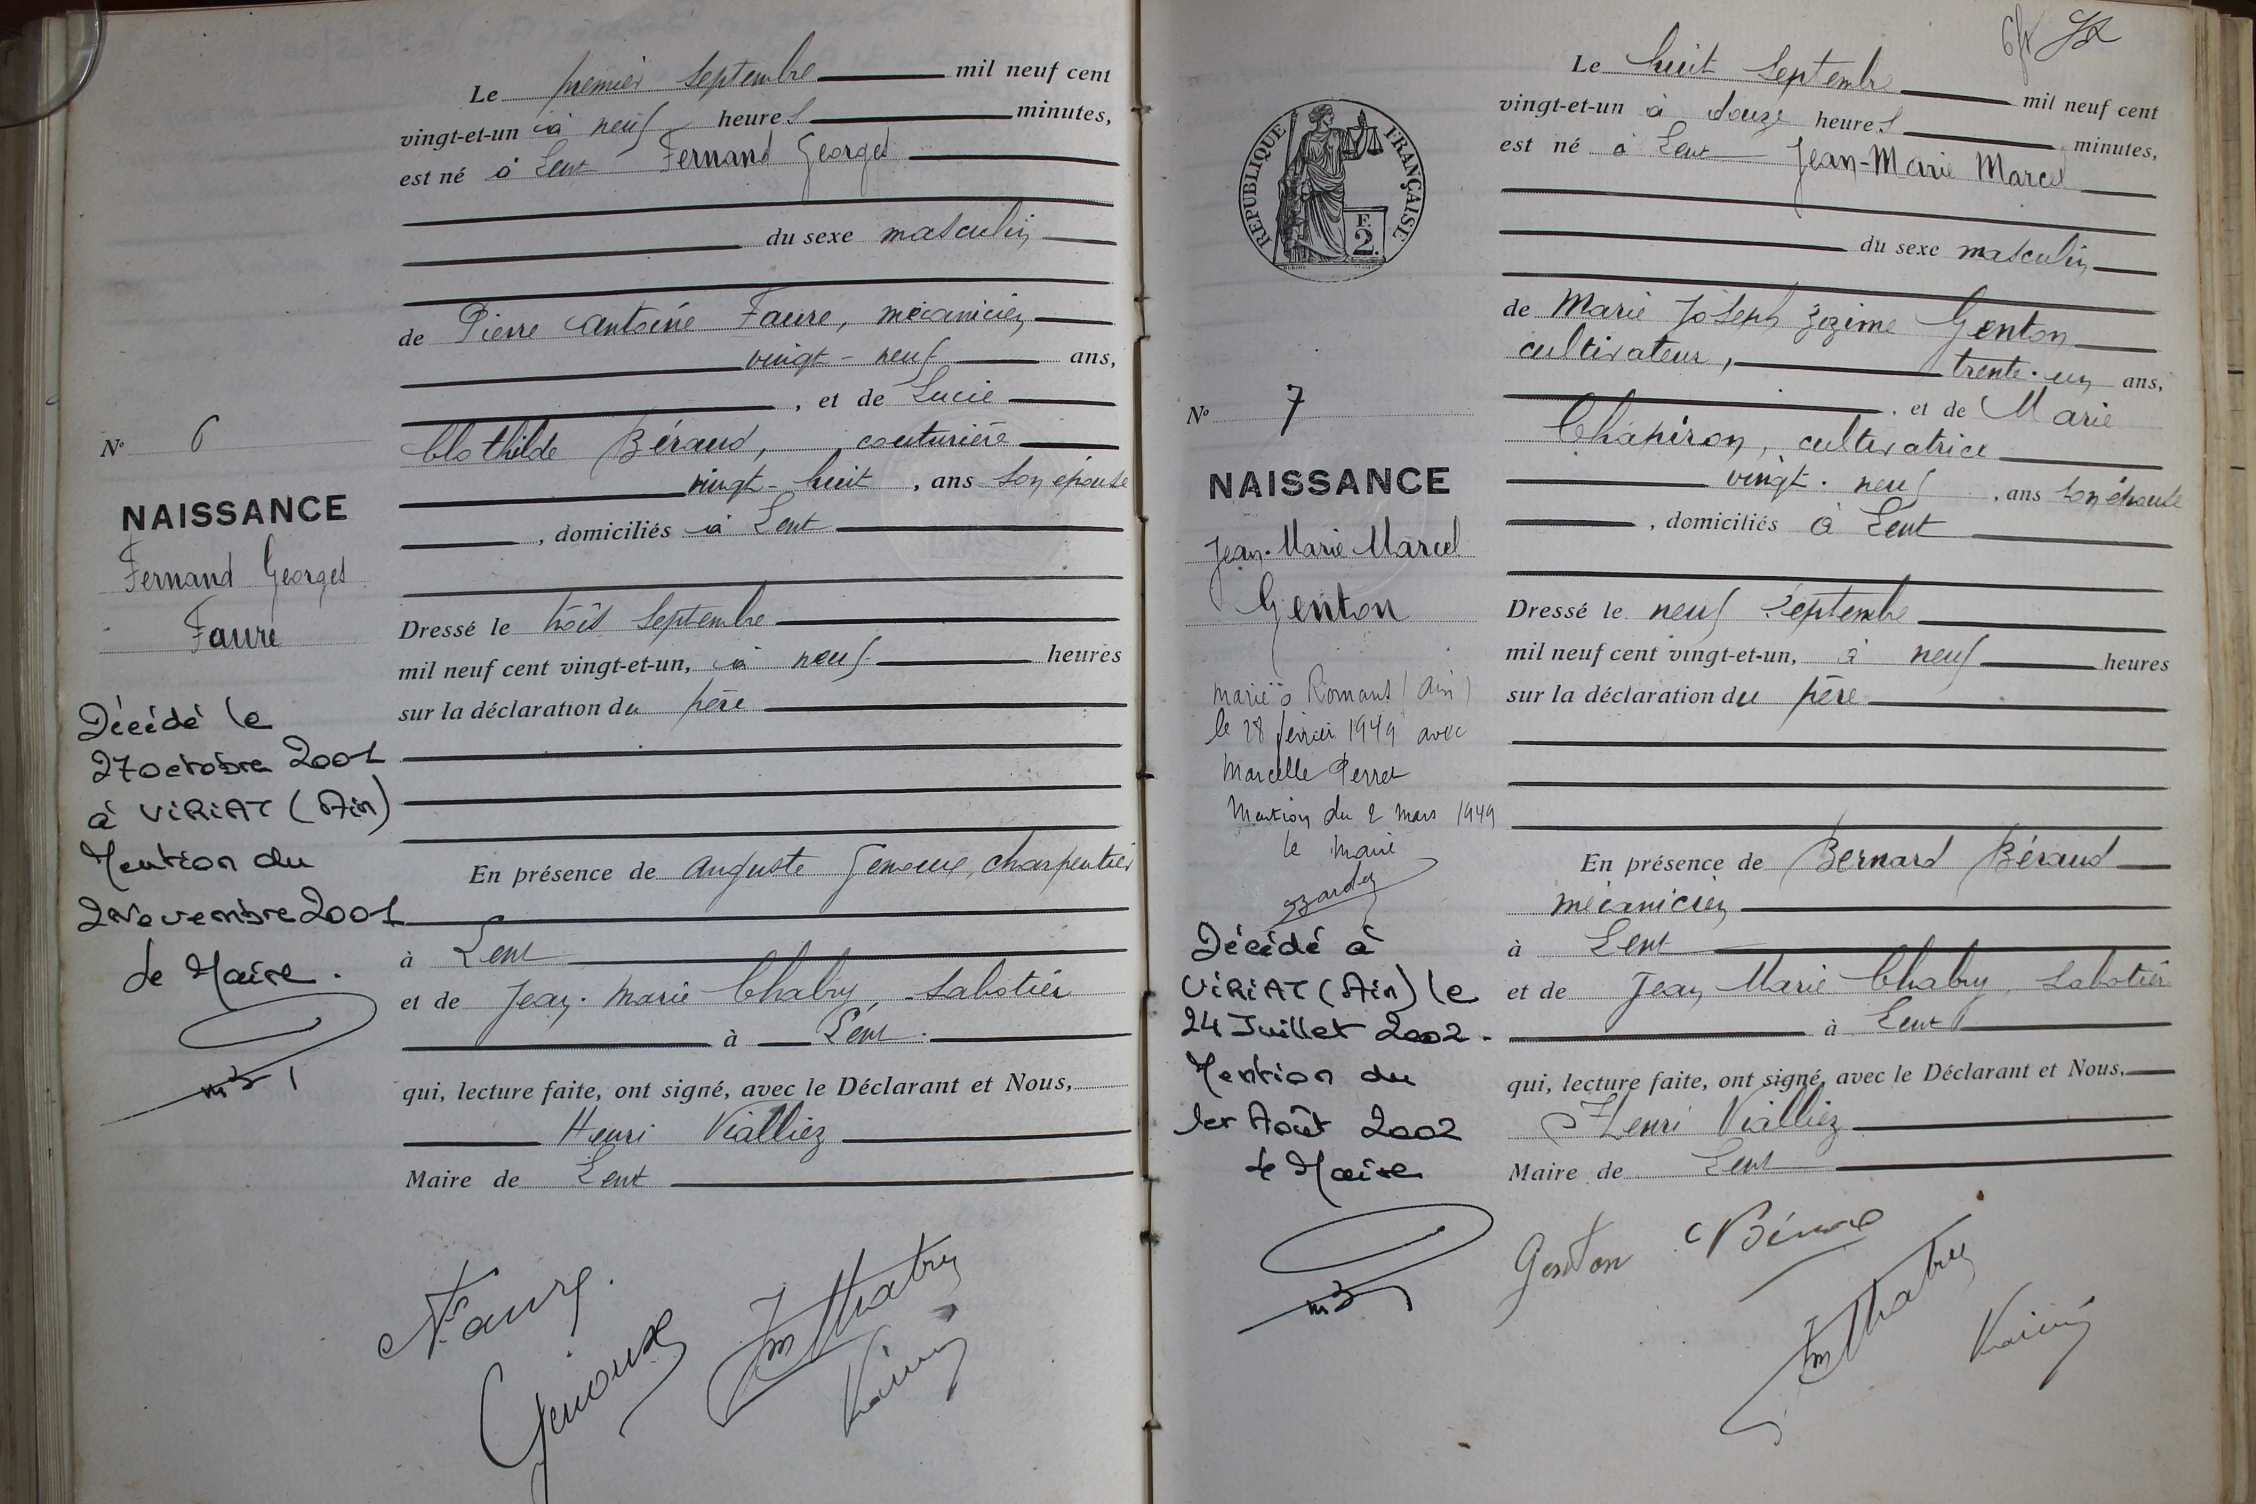 Le premier Septembre mil neuf cent
vingt-et-un à neuf heures minutes,
est né à Lent Fernand Georges
du sexe masculin
de Pierre Antoine Faure, mécanicien
vingt-neuf ans,
, et de Lucie
Clothilde Béraud, couturière
vingt-huit , ans son épouse
, domiciliés à Lent
Dressé le trois Septembre
mil neuf cent vingt-et-un, à neuf heures
sur la déclaration du père
En présence de Auguste Genoux, charpentier
à Lent
et de Jean-Marie Chabry, Sabotier
à Lent.
qui, lecture faite, ont signé, avec le Déclarant et Nous,
Henri Vialliez
Maire de Lent
N° 6
NAISSANCE
Fernand Georges
Faure
Décédé le
27 octobre 2001
à VIRIAT (Ain)
Mention du
2 Novembre 2001
Le Maire.
Faure
Genoux
Jm Chabry
Le huit Septembre mil neuf cent
vingt-et-un à douze heures minutes,
est né à Lent Jean-Marie Marcel
du sexe masculin
de Marie Joseph Zozime Genton
cultivateur, trente-un ans,
, et de Marie
Chapiron, cultivatrice
vingt-neuf , ans son épouse
, domiciliés à Lent
Dressé le neuf Septembre
mil neuf cent vingt-et-un, à neuf heures
sur la déclaration du père
En présence de Bernard Béraud
mécanicien
à Lent
et de Jean Marie Chabry, Sabotier
à Lent
qui, lecture faite, ont signé, avec le Déclarant et Nous,
Henri Vialliez
Maire de Lent
RÉPUBLIQUE FRANÇAISE
F.
2.
N° 7
NAISSANCE
Jean-Marie Marcel
Genton
marié à Romans (Ain)
le 28 février 1949 avec
Marcelle Perret
Mention du 2 mars 1949
le maire
Décédé à
VIRIAT (Ain) le
24 Juillet 2002.
Mention du
1er Août 2002
Le Maire
Genton Béraud
Jm Chabry